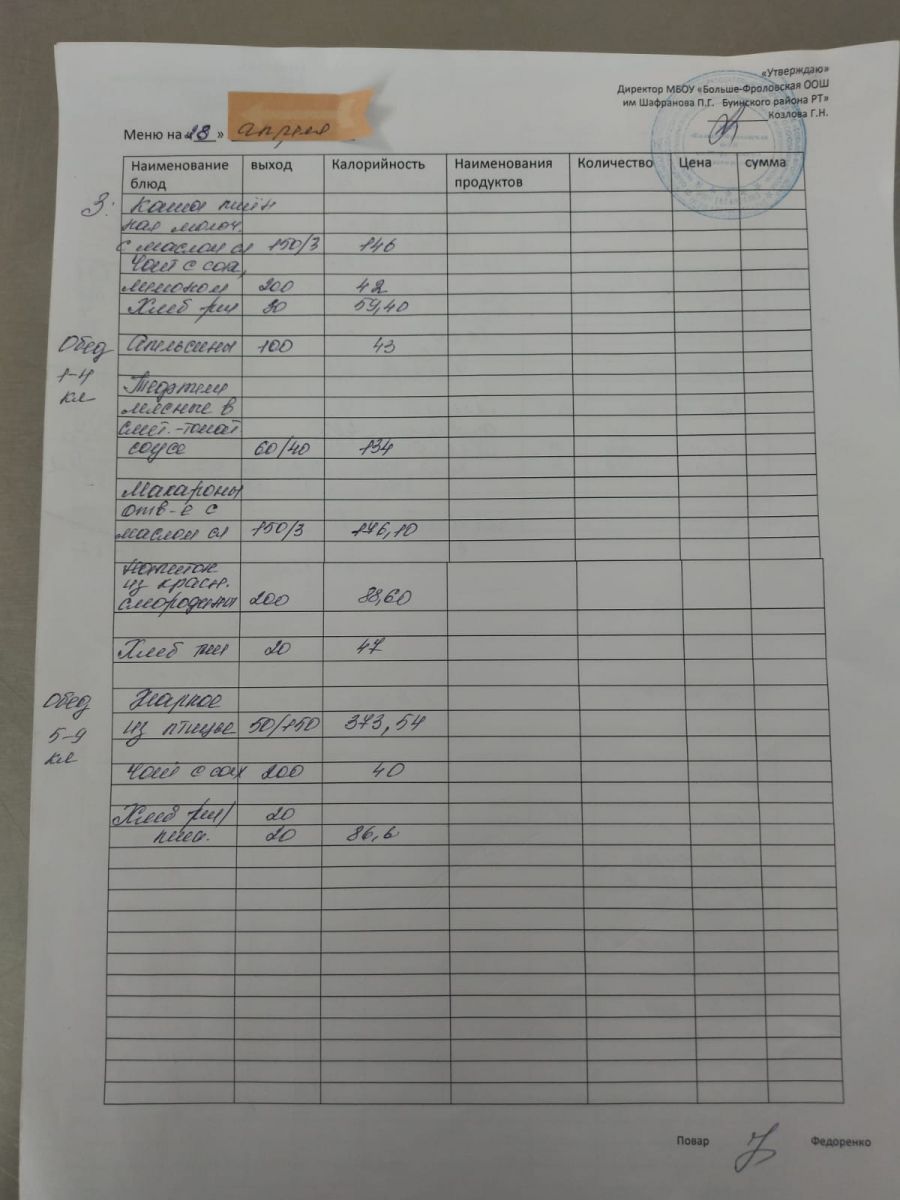 «Утверждаю»
Директор МБОУ «Больше-Фроловская ООШ
им Шафранова П.Г. Буинского района РТ»
Козлова Г.Н.
Меню на «28 » апреля
Наименование блюд выход Калорийность Наименования продуктов Количество Цена сумма
З: Каша пшён
ная молоч.
с маслом сл 150/3 146
Чай с сах,
лимоном 200 42
Хлеб рж 30 59,40
Обед Апельсины 100 43
1-4
кл Тефтели
мясные в
смет.-томат
соусе 60/40 134
Макароны
отв-е с
маслом сл 150/3 176,10
Напиток
из красн.
смородины 200 88,60
Хлеб пш 20 47
Обед Жаркое
5-9 из птицы 50/150 373,54
кл
Чай с сах 200 40
Хлеб рж/ 20
пш. 20 86,6
Повар Федоренко